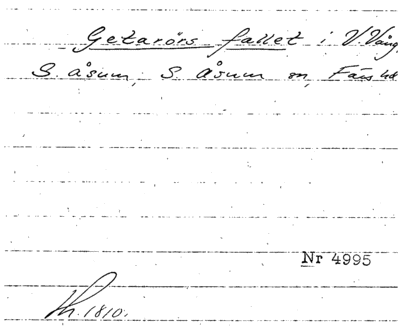 Getarörs fallet i V. Vång
S. åsum, S. Åsum sn, Färs hd
Nr 4995
1810.